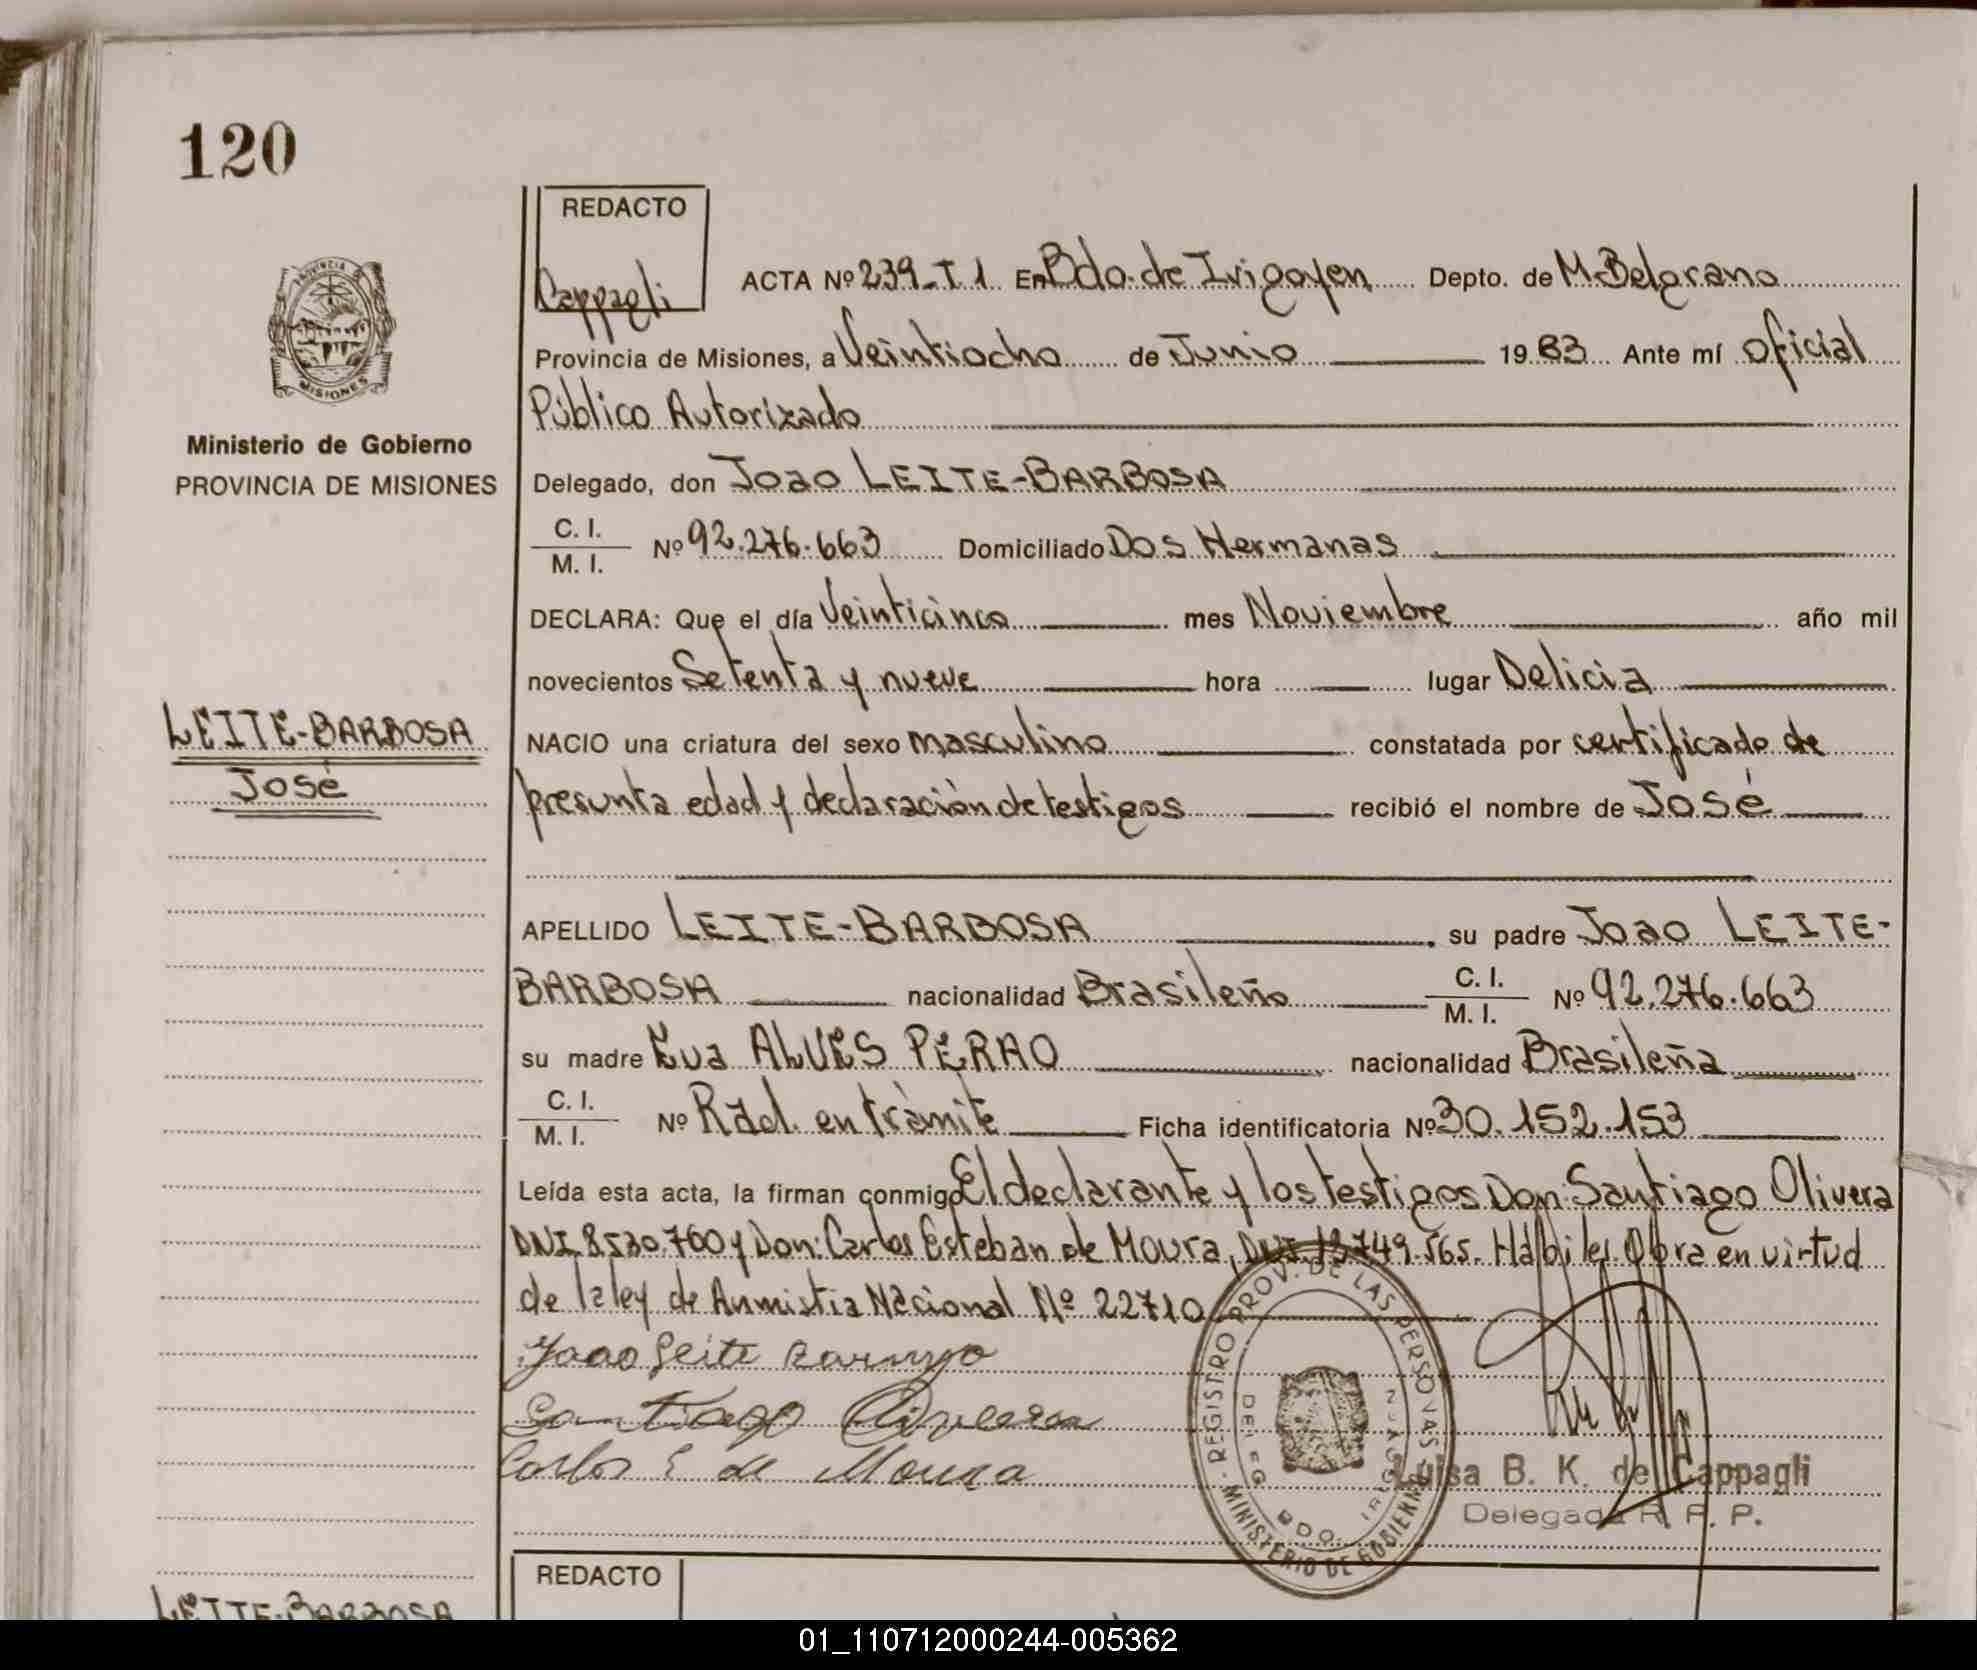 120
PROVINCIA DE MISIONES
Ministerio de Gobierno
PROVINCIA DE MISIONES
LEITE-BARBOSA
José
REDACTO
Cappagli
ACTA Nº 239-T1 En Bdo. de Irigoyen Depto. de M. Belgrano
Provincia de Misiones, a Veintiocho de Junio 1983 Ante mí Oficial
Público Autorizado
Delegado, don Joao LEITE-BARBOSA
C. I.
M. I. Nº 92.276.663 Domiciliado Dos Hermanas
DECLARA: Que el día Veinticinco mes Noviembre año mil
novecientos Setenta y nueve hora lugar Delicia
NACIO una criatura del sexo masculino constatada por certificado de
presunta edad y declaración de testigos recibió el nombre de José
APELLIDO LEITE-BARBOSA su padre Joao LEITE-
BARBOSA nacionalidad Brasileño C. I. M. I. Nº 92.276.663
su madre Eva ALVES PERAO nacionalidad Brasileña
C. I.
M. I. Nº Rad. en tràmite Ficha identificatoria Nº 30.152.153
Leída esta acta, la firman conmigo El declarante y los testigos Don: Santiago Olivera
DNI 8.530.760 y Don: Carlos Esteban de Moura, DNI 13.749.565. Hábiles Obra en virtud
de la ley de Anmistia Nacional Nº 22710
Joao Leite
Santiago Olivera
Carlos E de Moura
REGISTRO PROV. DE LAS PERSONAS
MINISTERIO DE GOBIERNO
DELEG. BDO. IRIGOYEN
Luisa B. K. de Cappagli
Delegada R. P. P.
REDACTO
LEITE-BARBOSA
01_110712000244-005362